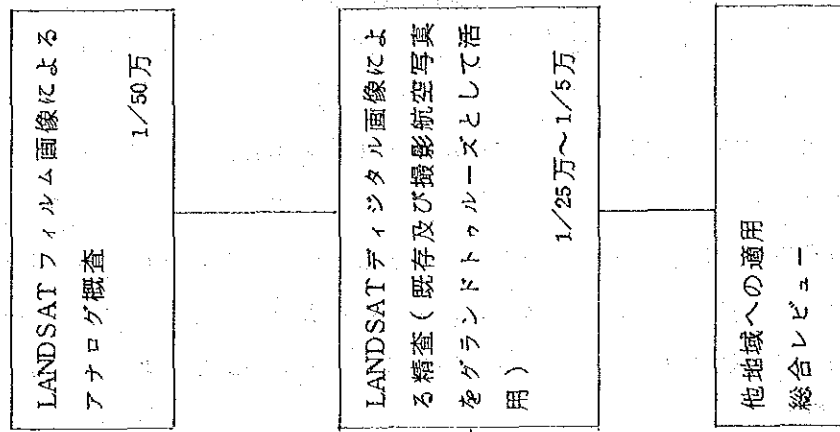 LANDSATフィルム画像による
アナログ概査
1/50万
LANDSATディジタル画像によ
る精査(既存及び撮影航空写真
をグランドトゥルーズとして活
用)
1/25万~1/5万
他地域への適用
総合レビュー